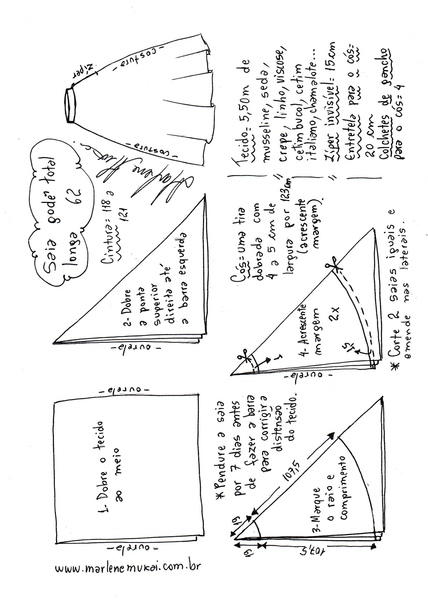 Saia godê total
longa 62
Cintura = 118 a
121
Marlene Mukai
Zíper
- costura -
- costura -
- ourela -
1- Dobre o tecido
ao meio
- ourela -
- ourela -
2- Dobre
a ponta
superior
direita até
a barra esquerda
Tecido = 5,50m de
musseline, seda,
crepe, linho, viscose,
cetim bucol, cetim
italiano, chamalote...
Zíper invisível = 15cm
Entretela para o cós =
20 cm
Colchetes de gancho
para o cós = 4
Cós = uma tira
dobrada com
4 a 5 cm de
largura por 123cm
(acrescente
margem).
* Pendure a saia
por 7 dias antes
de fazer a barra
para corrigir a
distensão
do tecido.
19
107,5
19
107,5
3- Marque
o raio e
comprimento
4- Acrescente
margem
2x
1
1,5
* Corte 2 saias iguais e
emende nas laterais.
www.marlenemukai.com.br